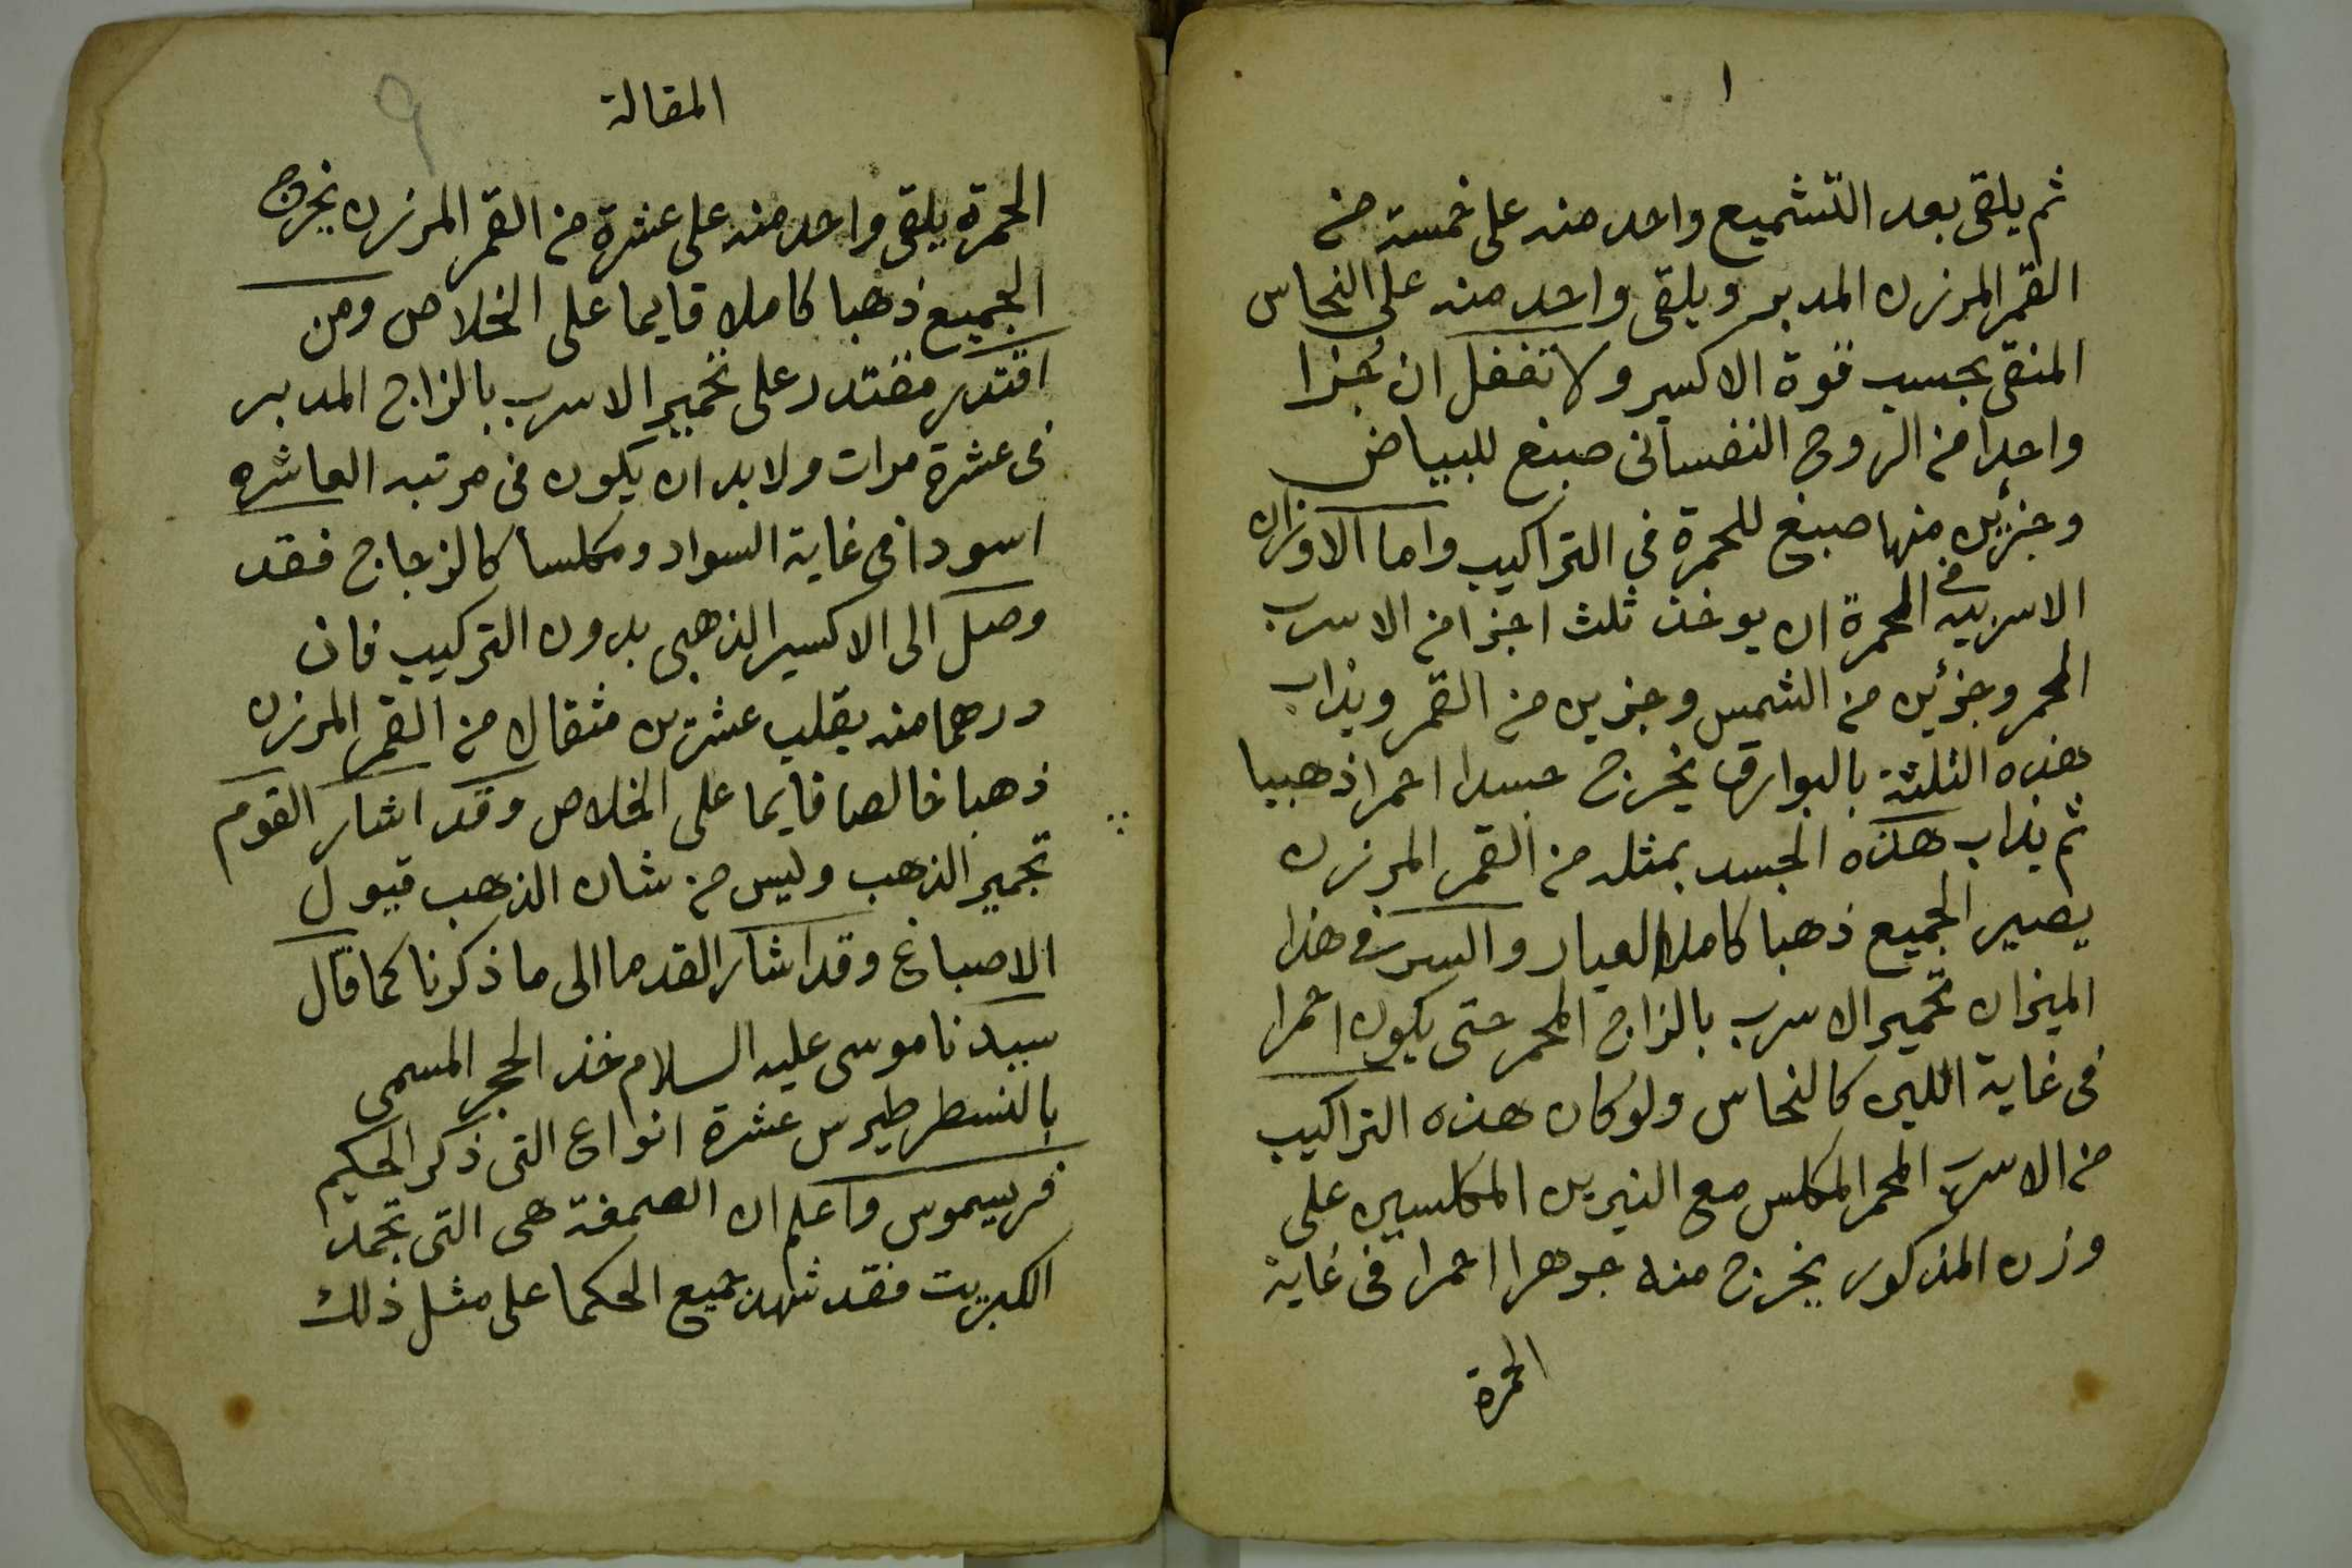 ١
ثم يلقى بعد التشميع واحد منه على خمسة من
القمر المرزن المدبر ويلقى واحد منه على النحاس
المنقى بحسب قوة الاكسير ولا تغفل ان جزا
واحدا من الروح النفسانى صبغ للبياض
وجزئين منها صبغ للحمرة في التراكيب واما الاوزان
الاسربيه في الحمرة ان يوخذ ثلث اجزا من الاسرب
المحمر وجزئين من الشمس وجزين من القمر ويذاب
هذه الثلثة بالبوارق يخرج جسدا احمرا ذهبيا
ثم يذاب هذه الجسد بمثله من القمر المرزن
يصير الجميع ذهبا كاملا العيار والسر في هذا
الميزان تحمير الاسرب بالزاج المحمر حتى يكون احمرا
فى غاية اللين كالنحاس ولو كان هذه التراكيب
من الاسرب المحمر المكلس مع النيرين المكلسين على
وزن المذكور يخرج منه جوهرا احمرا فى غاية
الحمرة
المقالة
9
الحمرة يلقى واحد منه على عشرة من القمر المرزن يخرج
الجميع ذهبا كاملا قايما على الخلاص ومن
اقتدر مقتدر على تحمير الاسرب بالزاج المدبر
فى عشرة مرات ولا بد ان يكون فى مرتبه العاشره
اسودا فى غاية السواد ومكلسا كالزجاج فقد
وصل الى الاكسير الذهبى بدون التركيب فان
درهما منه يقلب عشرين مثقال من القمر المرزن
ذهبا خالصا قايما على الخلاص وقد اشار القوم
تحمير الذهب وليس من شان الذهب قبول
الاصباغ وقد اشار القدما الى ما ذكرنا كما قال
سيدنا موسى عليه السلام خذ الحجر المسمى
بالنسطرطيرس عشرة انواع التى ذكر الحكيم
فرسيموس واعلم ان الصمغة هى التى تجمد
الكبريت فقد شهد جميع الحكما على مثل ذلك